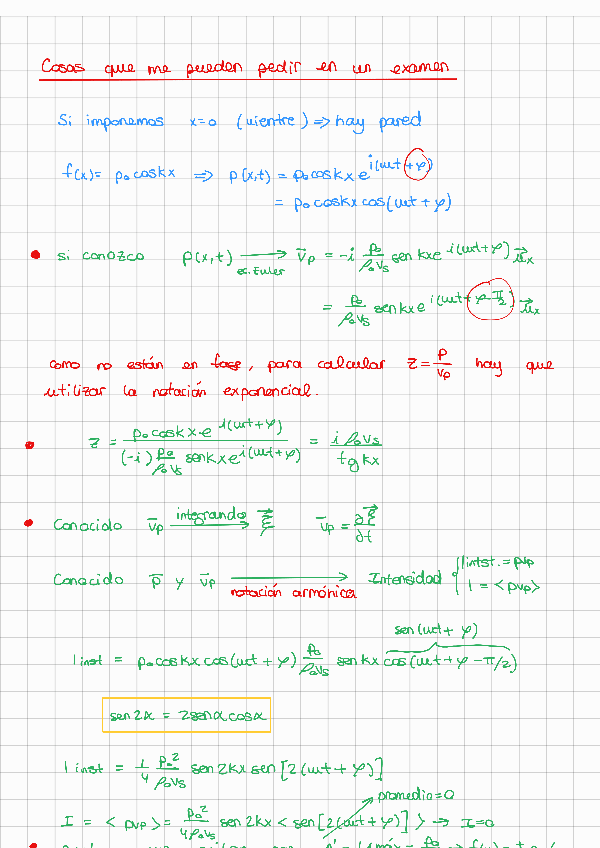 Cosas que me pueden pedir en un examen
Si imponemos x=0 (vientre) => hay pared
f(x) = p₀ cos kx => p(x,t) = p₀ cos kx e^{i(ωt+φ)}
= p₀ cos kx cos(ωt + φ)
• si conozco p(x,t) → (ec. Euler) v̄p = -i p₀/(ρ₀vs) sen kx e^{i(ωt+φ)} u⃗x
= p₀/(ρ₀vs) sen kx e^{i(ωt+φ-π/2)} u⃗x
como no están en fase, para calcular Z = p/vp hay que
utilizar la notación exponencial.
• Z = p₀ cos kx · e^{i(ωt+φ)} / ((-i) p₀/(ρ₀vs) sen kx e^{i(ωt+φ)}) = i ρ₀vs / tg kx
• Conocido v̄p → (integrando) ξ⃗ v̄p = ∂ξ⃗/∂t
Conocido p̄ y v̄p → (notación armónica) Intensidad { Iinst. = pvp
I = <pvp>
sen(ωt + φ)
Iinst = p₀ cos kx cos(ωt + φ) p₀/(ρ₀vs) sen kx cos(ωt + φ - π/2)
sen 2α = 2 sen α cos α
Iinst = 1/4 p₀²/(ρ₀vs) sen 2kx sen[2(ωt + φ)]
promedio=0
I = <pvp> = p₀²/(4ρ₀vs) sen 2kx < sen[2(ωt + φ)] > → I=0